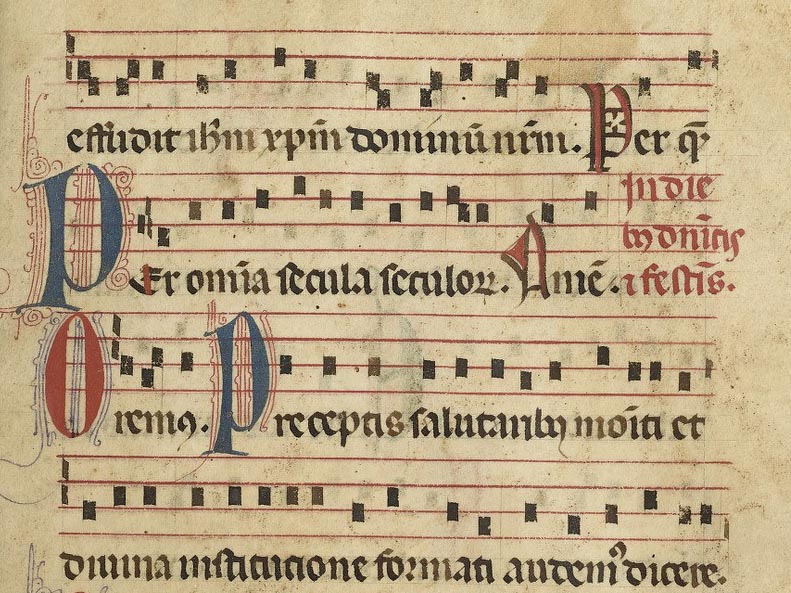 effudit ih̄m xp̄m dominū nr̄m. Per q̄
In die
bȝ dn̄icis
Per om̄ia secula seculoꝝ. Amē. ⁊ festis.
Oremꝰ. Preceptis salutaribȝ moīti et
diuina institucione formati audemꝰ dicere.